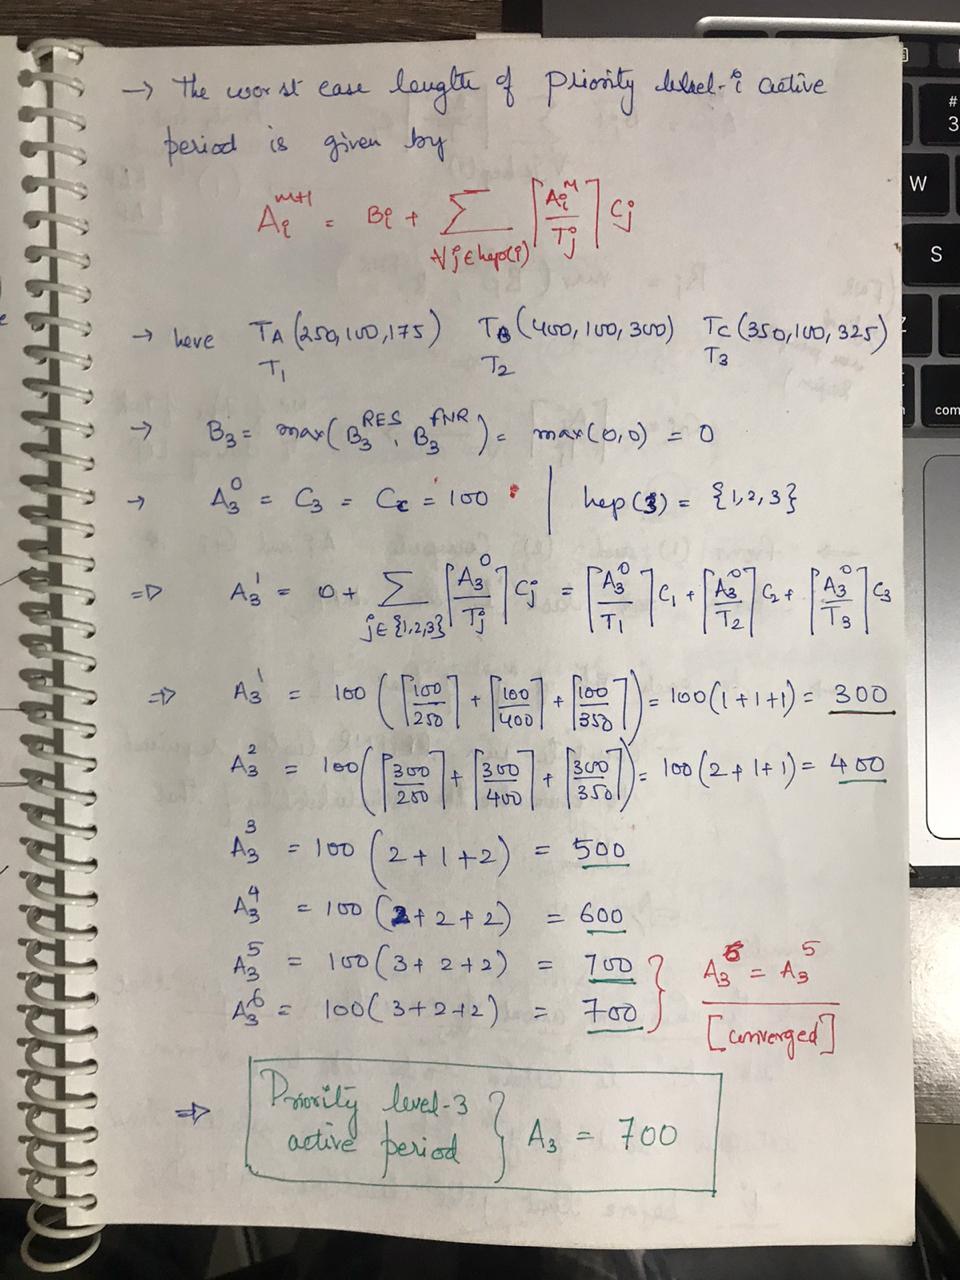 → The worst case length of Priority level-i active
period is given by
A_i^{m+1} = B_i + ∑_{∀j∈hep(i)} ⌈A_i^m / T_j⌉ C_j
→ here T_A (250,100,175) T_B (400,100,300) T_C (350,100,325)
T_1 T_2 T_3
→ B_3 = max(B_3^{RES}, B_3^{FNR}) = max(0,0) = 0
→ A_3^0 = C_3 = C_C = 100 | hep(3) = {1,2,3}
⇒ A_3^1 = 0 + ∑_{j∈{1,2,3}} ⌈A_3^0 / T_j⌉ C_j = ⌈A_3^0 / T_1⌉ C_1 + ⌈A_3^0 / T_2⌉ C_2 + ⌈A_3^0 / T_3⌉ C_3
⇒ A_3^1 = 100 (⌈100/250⌉ + ⌈100/400⌉ + ⌈100/350⌉) = 100(1+1+1) = 300
A_3^2 = 100 (⌈300/250⌉ + ⌈300/400⌉ + ⌈300/350⌉) = 100(2+1+1) = 400
A_3^3 = 100 (2+1+2) = 500
A_3^4 = 100 (2+2+2) = 600
A_3^5 = 100 (3+2+2) = 700
A_3^6 = 100 (3+2+2) = 700
} A_3^6 = A_3^5
[converged]
⇒ Priority level-3
active period } A_3 = 700
#
3
W
S
Z
com